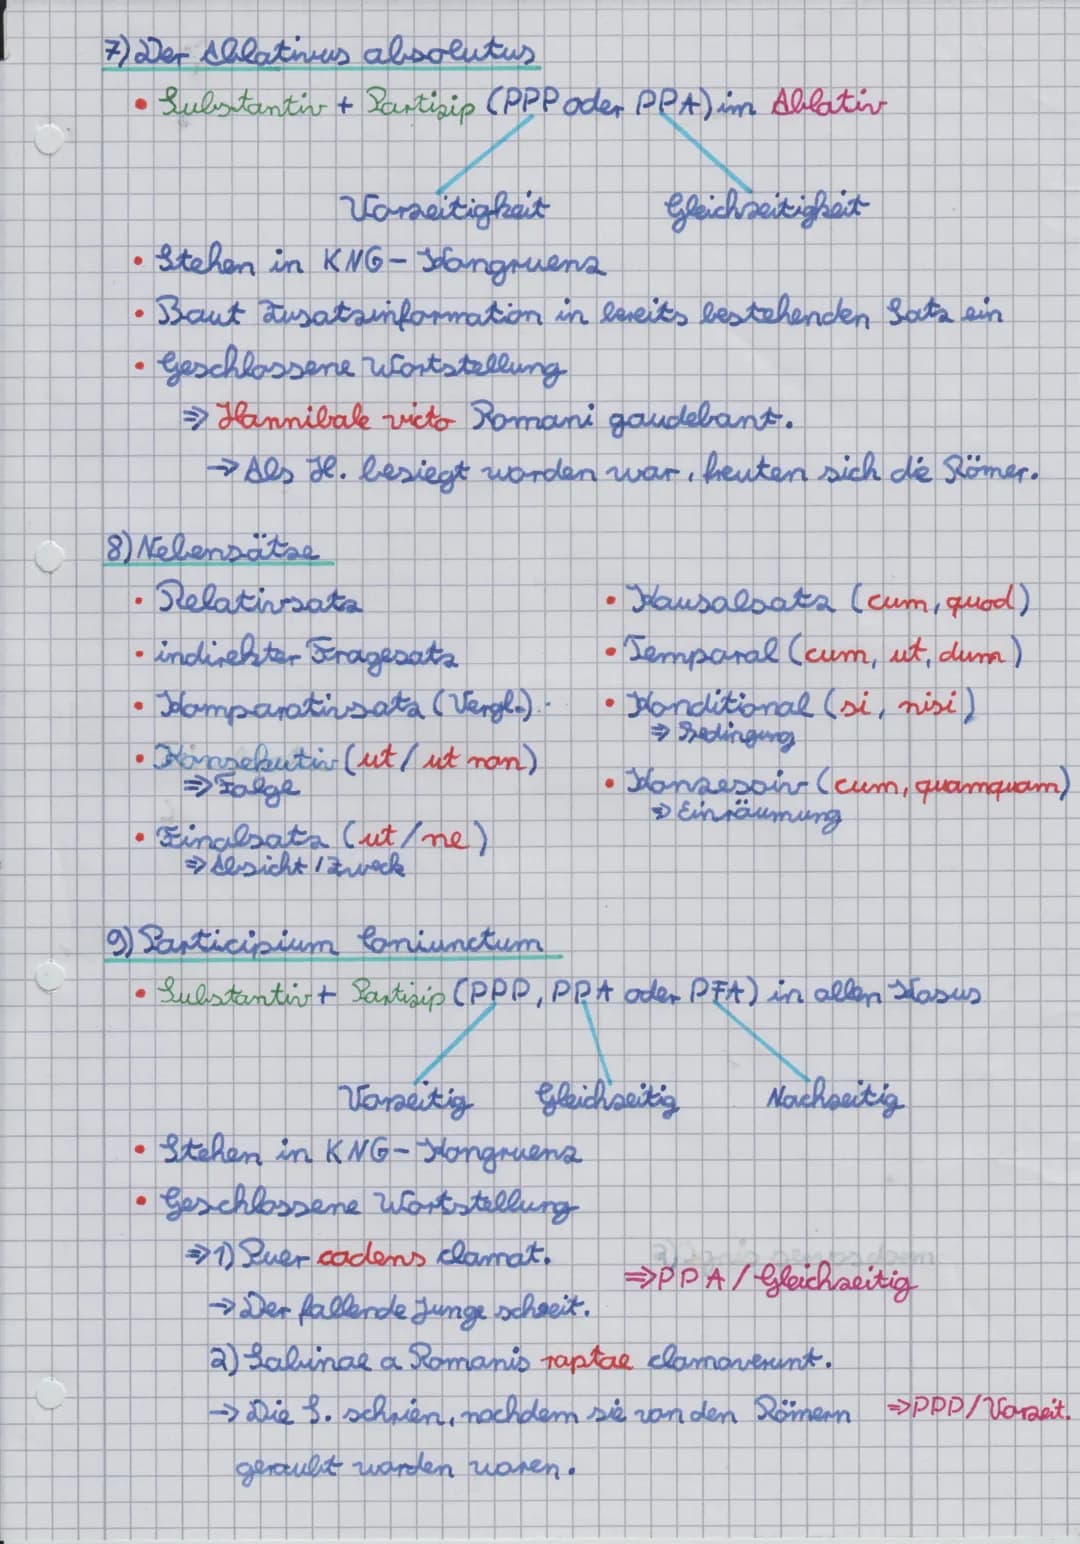 7) Der Ablativus absolutus
• Substantiv + Partizip (PPP oder PPA) im Ablativ
Vorzeitigkeit Gleichzeitigkeit
• Stehen in KNG-Kongruenz
• Baut Zusatzinformation in bereits bestehenden Satz ein
• Geschlossene Wortstellung
⇒ Hannibale victo Romani gaudebant.
→ Als H. besiegt worden war, freuten sich die Römer.
8) Nebensätze
• Relativsatz
• indirekter Fragesatz
• Komparativsatz (Vergl.)
• Konsekutiv (ut / ut non)
⇒ Folge
• Finalsatz (ut/ne)
⇒ Absicht / Zweck
• Kausalsatz (cum, quod)
• Temporal (cum, ut, dum)
• Konditional (si, nisi)
⇒ Bedingung
• Konzessiv (cum, quamquam)
⇒ Einräumung
9) Participium Coniunctum
• Substantiv + Partizip (PPP, PPA oder PFA) in allen Kasus
Vorzeitig Gleichzeitig Nachzeitig
• Stehen in KNG-Kongruenz
• Geschlossene Wortstellung
⇒ 1) Puer cadens clamat.
⇒ PPA / Gleichzeitig
→ Der fallende Junge schreit.
2) Sabinae a Romanis raptae clamaverunt.
→ Die S. schrien, nachdem sie von den Römern ⇒ PPP / Vorzeit.
geraubt worden waren.